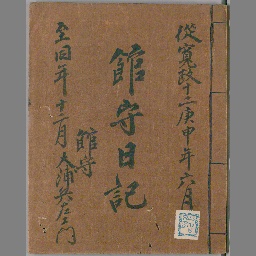 従寛政十二庚申年六月
館守日記
至同年十二月
館守
大浦兵左衛門